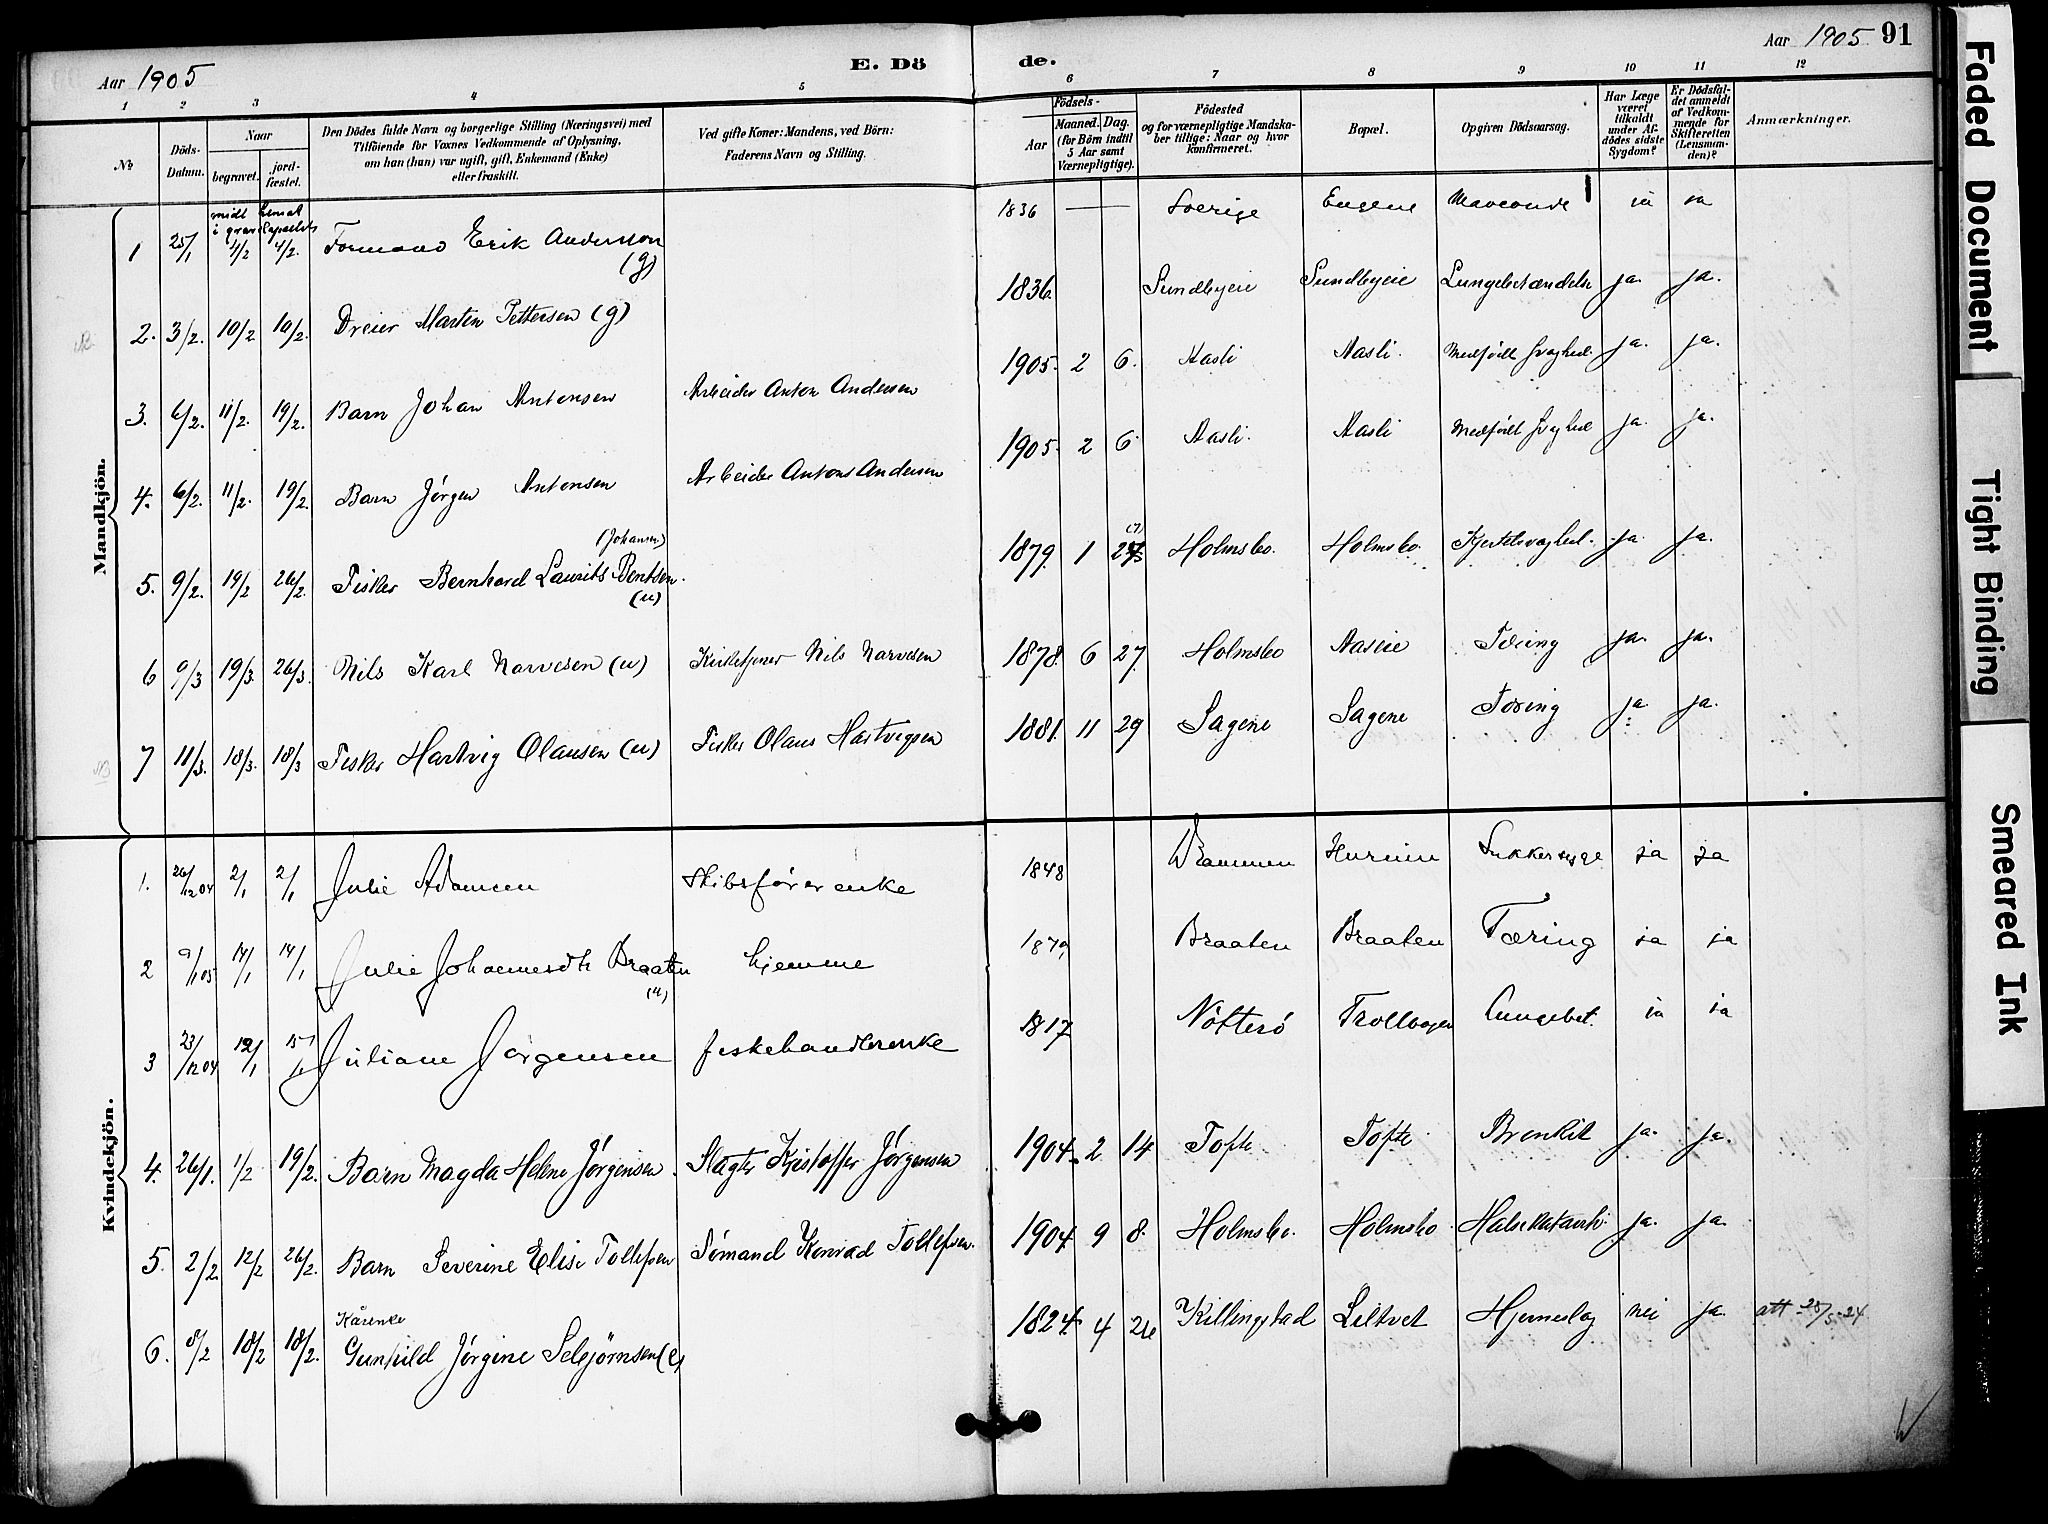 Aar 1905
E. Dö de.
Aar 1905. 91
1 2 3 4 5 6 7 8 9 10 11 12
No
Döds-Datum.
Naar
begravet.
jord-fæstet.
Den Dödes fulde Navn og borgerlige Stilling (Næringsvei) med
Tilföiende for Voxnes Vedkommende af Oplysning,
om han (hun) var ugift, gift, Enkemand (Enke)
eller fraskilt.
Ved gifte Koner: Mandens, ved Börn:
Faderens Navn og Stilling.
Födsels-
Aar
Maaned. Dag.
(for Börn indtil
5 Aar samt
Værnepligtige).
Födested
og for værnepligtige Mandska-
ber tillige: Naar og hvor
konfirmeret.
Bopæl.
Opgiven Dödsaarsag.
Har Læge
været
tilkaldt
under Af-
dödes sidste
Sygdom?
Er Dödsfal-
det anmeldt
af Vedkom-
mende for
Skifteretten
(Lensman-
den)?
Anmærkninger.
Mandkjön.
1 25/1 4/2 4/2. Formand Erik Andersson (g) 1836 — Sverige Eugene Maveonde ja ja
2. 3/2. 10/2 10/2. Dreier Martin Pettersen (g) 1836. Sundbyeie Sundbyeie Lungebetændelse ja. ja.
3. 6/2. 11/2. 19/2. Barn Johan Antonsen Arbeider Anton Andersen 1905. 2 6. Aasli Aasli. Medfödt svaghed. ja. ja.
4. 6/2. 11/2. 19/2. Barn Jørgen Antonsen Arbeider Anton Andersen 1905. 2 6. Aasli. Aasli Medfödt svaghed ja. ja.
(Johansen)
5. 9/2. 19/2 26/2. Fisker Bernhard Laurits Bentsen. (u) 1879. 1 Holmsbo. Holmsbo. Kjertelsvaghed. ja. ja.
6 9/3 19/3. 26/3. Nils Karl Narvesen (u) Kirketjener Nils Narvesen 1878. 6 27. Holmsbo Aaseie Tæring ja. ja.
7 11/3. 18/3. 18/3 Fisker Hartvig Olausen (u) Fisker Olaus Hartvigsen 1881. 11 29 Sagene Sagene Tæring ja. ja.
Kvindekjön.
1. 26/12 04 2/1 2/1 Julie Adamsen Skibsförerenke 1848 Drammen Hurum Sukkersyge ja ja
2 9/1 05 14/1 14/1 Julie Johannesdtr Braaten (u) hjemme 1879, Braaten Braaten Tæring ja ja
3 23/12 04 12/1 15/1 Juliane Jørgensen fiskehandlerenke 1817 Nötterö Trollvogen Lungebet. ja ja
4. 26/1. 1/2 19/2. Barn Magda Helene Jørgensen. Slagter Kristoffer Jørgensen 1904. 2 14 Tofte Tofte Bronkit ja. ja.
5. 2/2 12/2 26/2. Barn Severine Elise Tollefsen Sømand Konrad Tollefsen. 1904. 9 8. Holmsbo. Holmsbo. Halskatarrh. ja. ja.
Kårenke
6. 8/2 18/2 18/2. Gunhild Jørgine Sebjørnsen (e) 1824. 4 26 Killingstad Liltvet Hjerneslag nei ja. att 28/5-24
Faded Document
Tight Binding
Smeared Ink